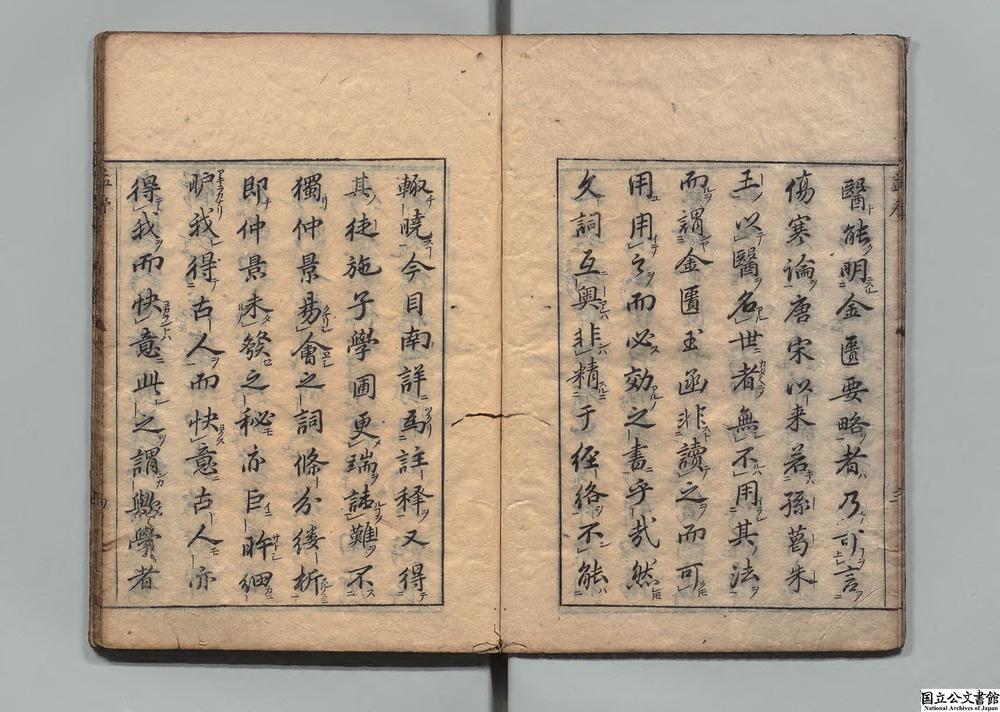 醫能明金匱要略者乃可言
傷寒論唐宋以来若孫葛朱
王以醫名世者無不用其法
而謂金匱玉函非讀之而可
用用之而必效之書乎哉然
久詞互奥非精于径络不能
輙曉今目南詳為註釋又得
其徒施子學圃更端誌難不
獨仲景易會之詞條分缕析
即仲景未發之秘亦巨眹細
胪我得古人而快意古人亦
得我而快意此之謂與學者
国立公文書館
National Archives of Japan